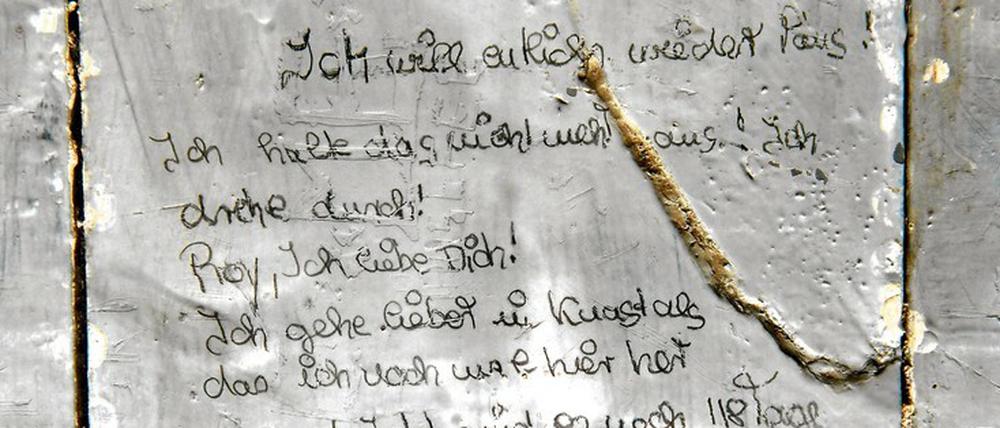 Ich will entlich wieder raus!
Ich halte das nicht mehr aus! Ich
drehe durch!
Roy, Ich liebe Dich!
Ich gehe lieber in Knast als
das ich noch mal hier her
sind es noch 118 Tage